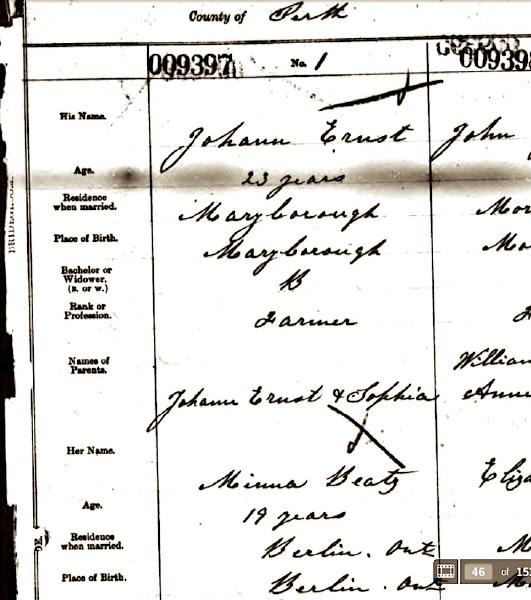 County of Perth
009397 No. 1
His Name. Johann Ernst John
Age. 23 years
Residence when married. Maryborough Mor
Place of Birth. Maryborough Mo
Bachelor or Widower. (B. or W.) B
Rank or Profession. Farmer
Names of Parents. William
Johann Ernst & Sophia Anne
Her Name. Minna Beatz Eliza
Age. 19 years
Residence when married. Berlin. Ont
Place of Birth. Berlin. Ont
46 of 15